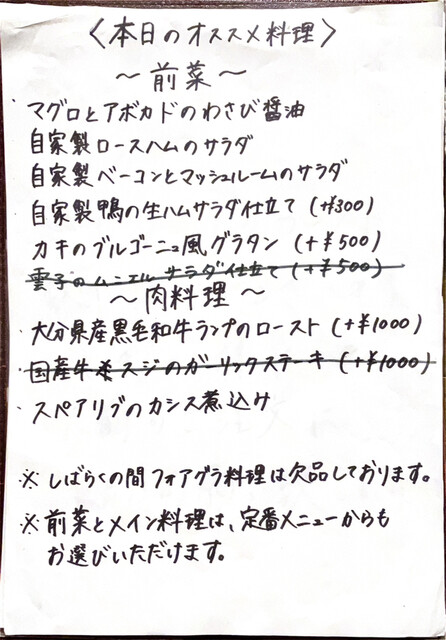 〈本日のオススメ料理〉
～前菜～
・マグロとアボカドのわさび醤油
自家製ロースハムのサラダ
自家製ベーコンとマッシュルームのサラダ
自家製鴨の生ハムサラダ仕立て (+¥300)
カキのブルゴーニュ風グラタン (+¥500)
雲子のムニエル サラダ仕立て (+¥500)
～肉料理～
・大分県産黒毛和牛ランプのロースト (+¥1000)
・国産牛スジのガーリックステーキ (+¥1000)
・スペアリブのカシス煮込み
※しばらくの間フォアグラ料理は欠品しております。
※前菜とメイン料理は、定番メニューからも
お選びいただけます。